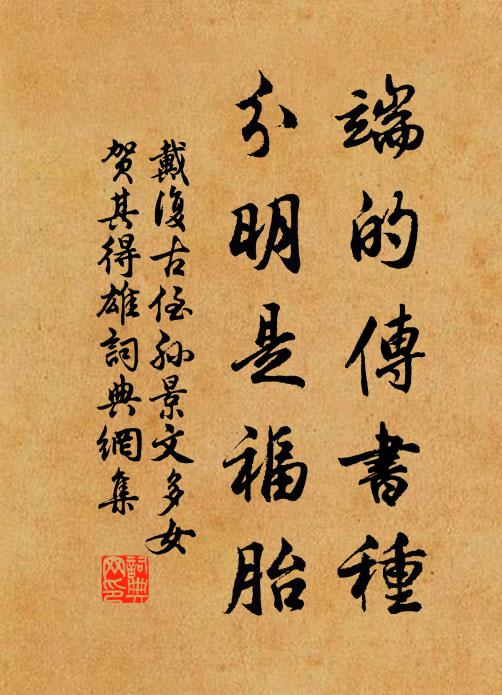 端的傳書種
分明是福胎
戴復古侄孫景文多女
賀其得雄詞典網集
詞典网印